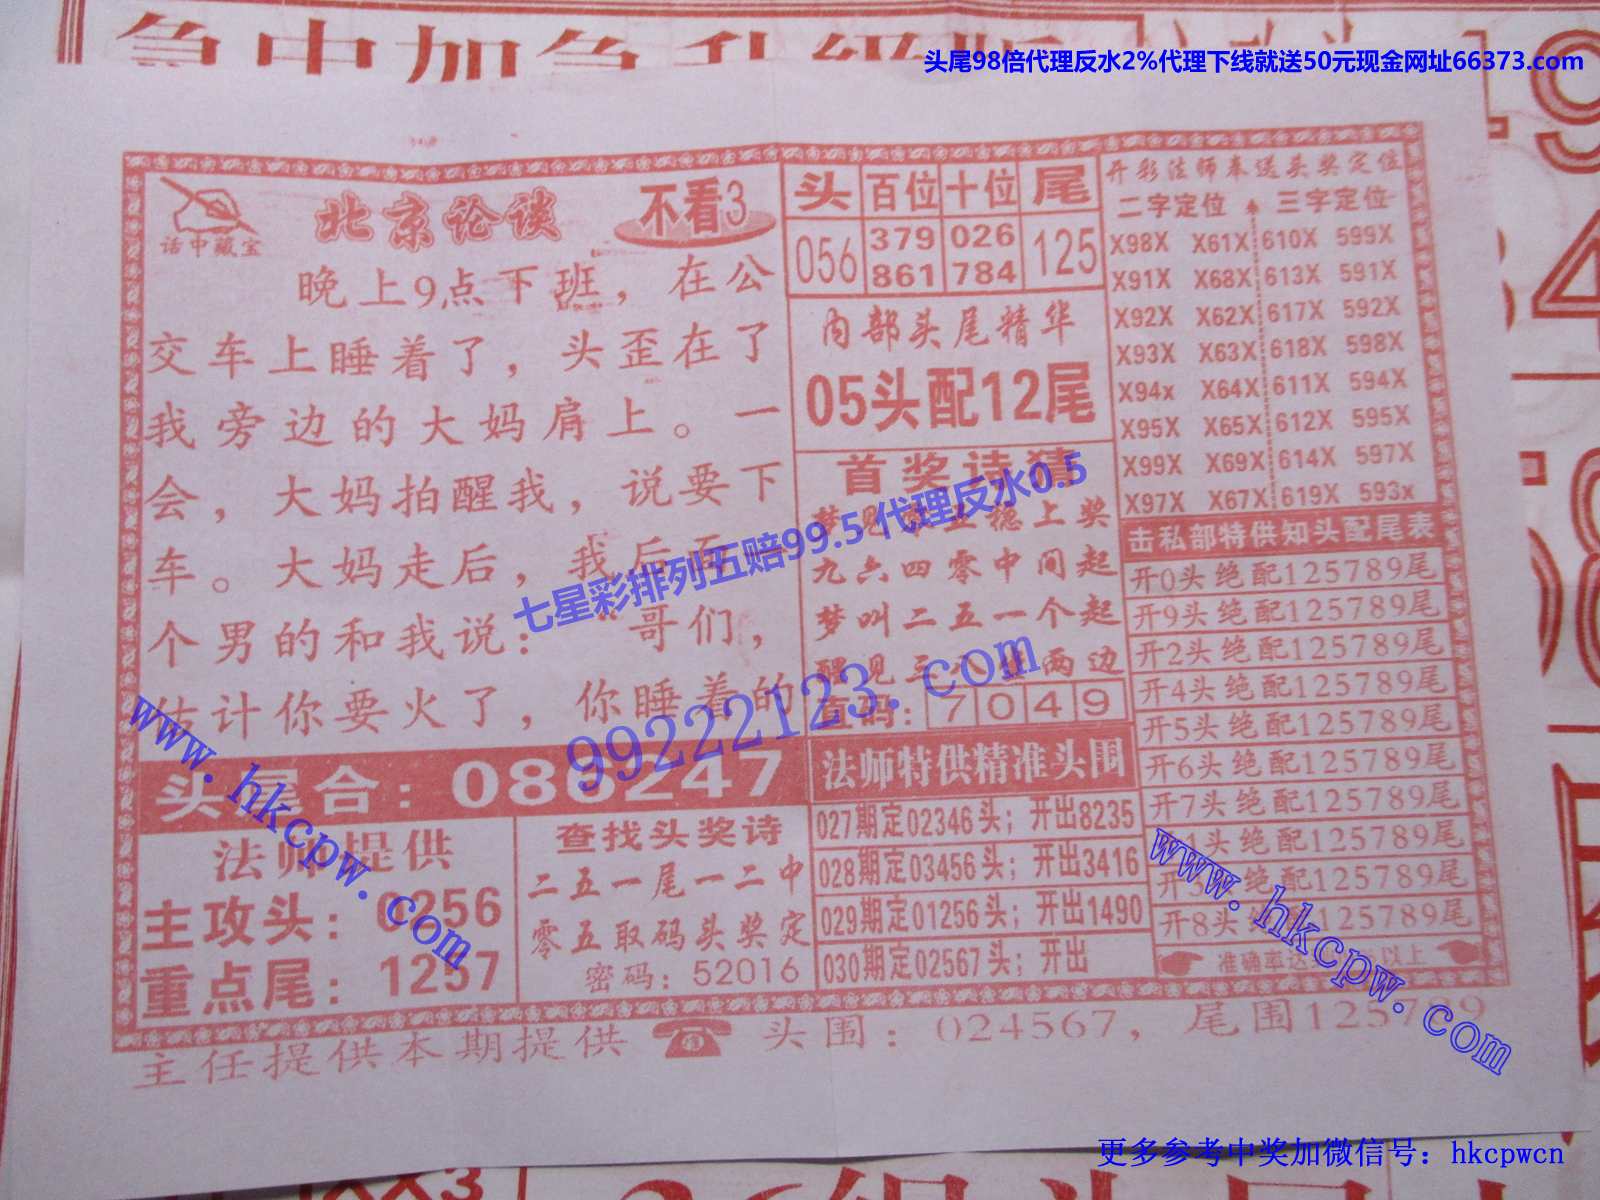 头尾98倍代理反水2%代理下线就送50元现金网址66373.com
话中藏宝
北京论谈
不看3
晚上9点下班，在公
交车上睡着了，头歪在了
我旁边的大妈肩上。一
会，大妈拍醒我，说要下
车。大妈走后，我后面一
个男的和我说："哥们，
估计你要火了，你睡着的
头尾合：086247
法师提供
主攻头：0256
重点尾：1257
查找头奖诗
二五一尾一二中
零五取码头奖定
密码：52016
头 百位 十位 尾
056 379 026 125
861 784
内部头尾精华
05头配12尾
首奖诗猜
九六四零中间起
梦叫二五一个起
首码：7049
法师特供精准头围
027期定02346头；开出8235
028期定03456头；开出3416
029期定01256头；开出1490
030期定02567头；开出
开彩法师奉送头奖定位
二字定位 三字定位
X98X X61X 610X 599X
X91X X68X 613X 591X
X92X X62X 617X 592X
X93X X63X 618X 598X
X94x X64X 611X 594X
X95X X65X 612X 595X
X99X X69X 614X 597X
X97X X67X 619X 593x
击私部特供知头配尾表
开0头绝配125789尾
开9头绝配125789尾
开2头绝配125789尾
开4头绝配125789尾
开5头绝配125789尾
开6头绝配125789尾
开7头绝配125789尾
1头绝配125789尾
开 绝配125789尾
开8头 125789尾
准确率达 以上
主任提供本期提供 头围：024567，尾围125789
七星彩排列五赔99.5 代理反水0.5
99222123.com
www.hkcpw.com
www.hkcpw.com
更多参考中奖加微信号：hkcpwcn